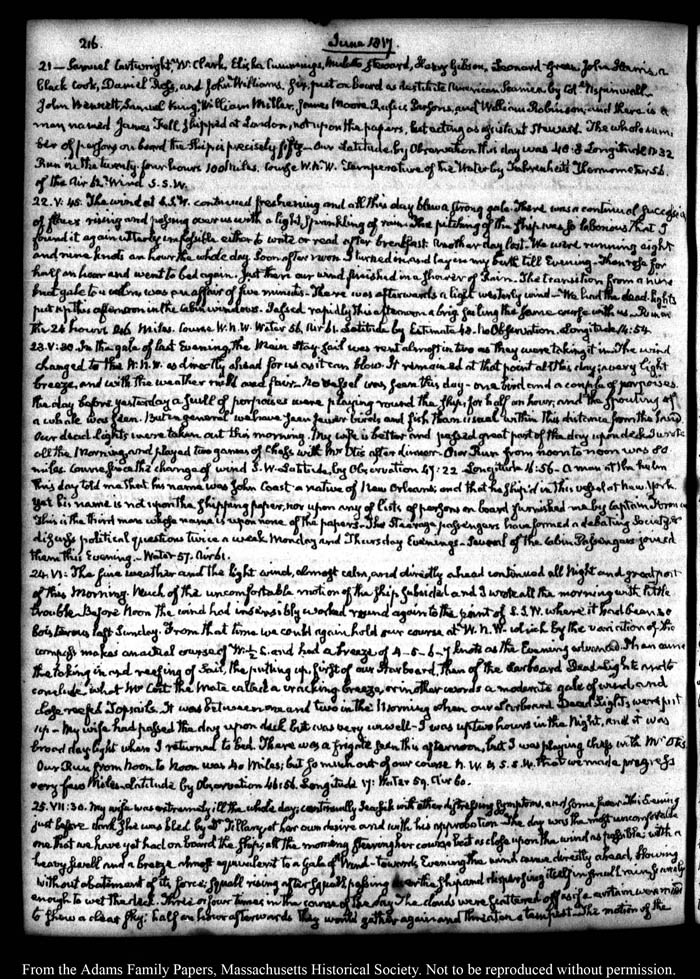 216.
June 1817.
21— Samuel Cartwright, W. Clark, Elisha Cummings, Mulatto Steward, Henry Gibson, Leonard Green, John Harris, a
black Cook, Daniel Ross, and John Williams. Six, put on board as destitute American Seamen by Col. Aspinwall—
John Bennett, Samuel King, William Miller, James Moore, Rufus Parsons, and William Robinson; and there is a
man named James Tell shipped at London, not upon the papers, but acting as assistant Steward. The whole num-
ber of persons on board the Ship is precisely fifty— Our Latitude by Observation this day was 48:3 Longitude 12:32
Run in the twenty four hours 100 Miles. Course W.N.W. Temperature of the Water by Fahrenheit's Thermometer 56.
of the Air 62. Wind S.S.W.
22. V:45. The wind at S.S.W. continued freshening and all this day blew a strong gale. There was a continual succession
of showers rising and passing over us with a light sprinkling of rain. The pitching of the Ship was so laborious that I
found it again utterly impossible either to write or read after breakfast. Another day lost. We were running eight
and nine knots an hour the whole day. Soon after noon I turned in and lay in my birth till Evening. Then rose for
half an hour and went to bed again. Just then our wind finished in a shower of Rain. The transition from a near
brisk gale to a calm, was an affair of five minutes. There was afterwards a light westerly wind— We had the dead-lights
put up this afternoon in the Cabin windows. Passed rapidly this afternoon a brig sailing the same course with us. Run in
the 24 hours 206 Miles. Course W.N.W. Water 56. Air 61. Latitude by Estimate 48. No Observation. Longitude 14:54.
23. V:30. In the gale of last Evening, the Main Stay sail was rent almost in two as they were taking it in. The wind
changed to the W.N.W. as directly ahead for us as it can blow. It remained at that point all this day; a very light
breeze, and with the weather mild and fair. No vessel was seen this day— one bird and a couple of porpoises.
The day before yesterday a scull of porpoises were playing round the Ship, for half an hour; and the spouting of
a whale was seen. But in general we have seen fewer birds and fish than usual within this distance from the land.
Our dead-lights were taken out this morning. My wife is better and passed great part of the day upon deck. I wrote
all the Morning, and played two games of Chess with Mr Otis after dinner— Our Run from noon to noon was 80
miles. Course since the change of wind S.W. Latitude, by Observation 47:22 Longitude 16:56— A man at the helm
this day told me that his name was John Coast a native of New Orleans, and that he ship'd in this vessel at New York
yet his name is not upon the Shipping paper, nor upon any of lists of persons on board furnished me by Captain
This is the third man whose name is upon none of the papers— The Steerage passengers have formed a debating Society to
discuss political questions twice a week Monday and Thursday Evenings— Several of the Cabin Passengers joined
them this Evening.— Water 57. Air 61.
24. VI: The fine weather and the light wind, almost calm, and directly ahead continued all Night and great part
of this Morning. Much of the uncomfortable motion of the Ship subsided and I wrote all the morning with little
trouble. Before Noon the wind had insensibly worked round again to the point of S.S.W. where it had been so
boisterous last Sunday. From that time we could again hold our course at W.N.W. which by the variation of the
compass makes an actual course of W. ½ S. and had a breeze of 4-5-6-7 knots as the Evening advanced. Then came
the taking in and reefing of Sail, the putting up, first of our Starboard, then of the Larboard Dead-Lights and to
conclude, what Mr the Mate called a cracking breeze, or in other words a moderate gale of wind, and
close reefed Topsails. It was between one and two in the Morning when our Larboard Dead Lights were put
up— My wife had passed the day upon deck but was very unwell— I was up two hours in the Night, and it was
broad daylight when I returned to bed. There was a frigate seen this afternoon, but I was playing chess with Mr Otis.
Our Run from Noon to Noon was 40 Miles; but so much out of our course N.W. & S.S.W. that we made progress
very few Miles— Latitude by Observation 46:56. Longitude 17: Water 59. Air 60.
25. VII:30. My wife was extremely ill the whole day; continually Seasick with other distressing symptoms, and some fever. This Evening
just before dark she was bled by Dr Tillary, at her own desire and with his approbation. The day was the most uncomfortable
one that we have yet had on board the Ship; all the morning steering her course, but as close upon the wind as possible; with a
heavy swell and a breeze almost equivalent to a Gale of Wind— towards Evening the wind came directly ahead, blowing
without abatement of its force; Squall rising after Squall passing over the Ship and dispersing itself in small rain, scarcely
enough to wet the deck. Three or four times in the course of the day The clouds were scattered off as if a curtain were raised
to shew a clear sky; half an hour afterwards they would gather again and threaten a tempest. The motion of the
From the Adams Family Papers, Massachusetts Historical Society. Not to be reproduced without permission.